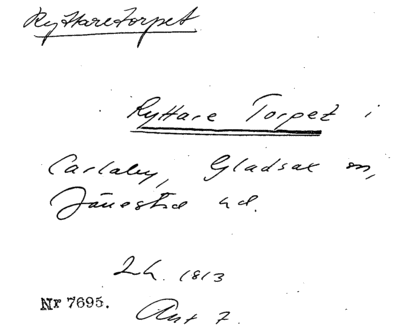 Ryttaretorpet
Ryttare Torpet i
Carlaby, Gladsax sn,
Järrestad hd.
Lh. 1813
Nr 7695.
Akt 7.